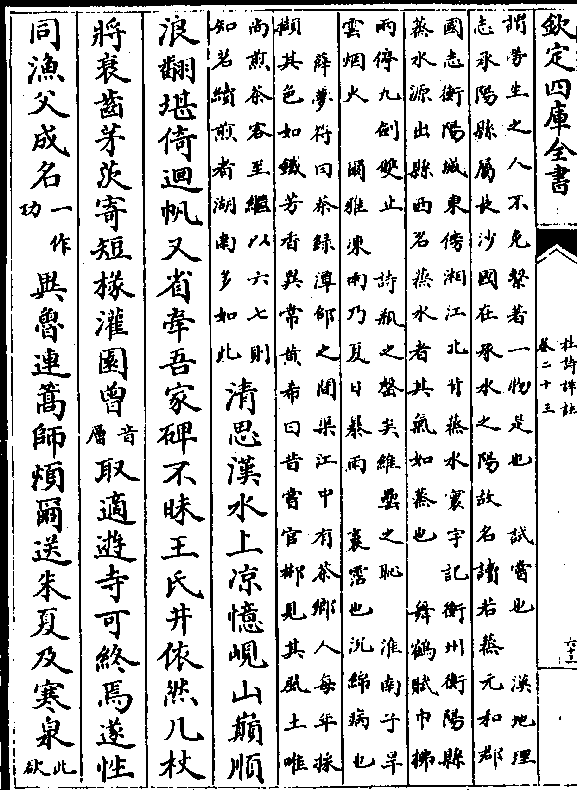 欽定四庫全書
杜詩詳註
卷二十三
六十三
謂勞生之人不免繫著一物是也　試嘗也　漢地理
志承陽縣屬長沙國在承水之陽故名讀若蒸元和郡
國志衡陽城東傍湘江北背蒸水寰宇記衡州衡陽縣
蒸水源出縣西名蒸水者其氣如蒸也　舞鶴賦巾拂
兩停九劍雙止　詩瓶之罄矣維罍之恥　淮南子旱
雲烟火　爾雅凍雨乃夏日暴雨　裛霑也沉綿病也
薛夢符曰茶錄潭邵之間渠江中有茶鄉人每年採
擷其色如鐵芳香異常黄希曰昔嘗官郴見其風土唯
尚煎茶客至繼以六七則
知茗續煎者湖南多如此
清思漢水上凉憶峴山巔順
浪翻堪倚迴帆又省牽吾家碑不昧王氏井依然几杖
將衰齒茅茨寄短椽灌園曾音層取適遊寺可終焉遂性
同漁父成名一作功異魯連篙師煩爾送朱夏及寒泉此欲